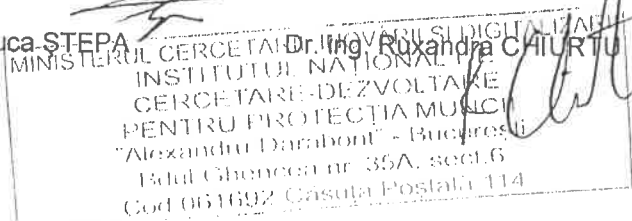 uca ȘTEPA Dr. Ing. Ruxandra CHIURTU
MINISTERUL CERCETĂRII INOVĂRII ȘI DIGITALIZĂRII
INSTITUTUL NAȚIONAL DE
CERCETARE-DEZVOLTARE
PENTRU PROTECȚIA MUNCII
"Alexandru Darabont" - București
Bdul Ghencea nr. 35A, sect.6
Cod 061692 Căsuța Poștală 114